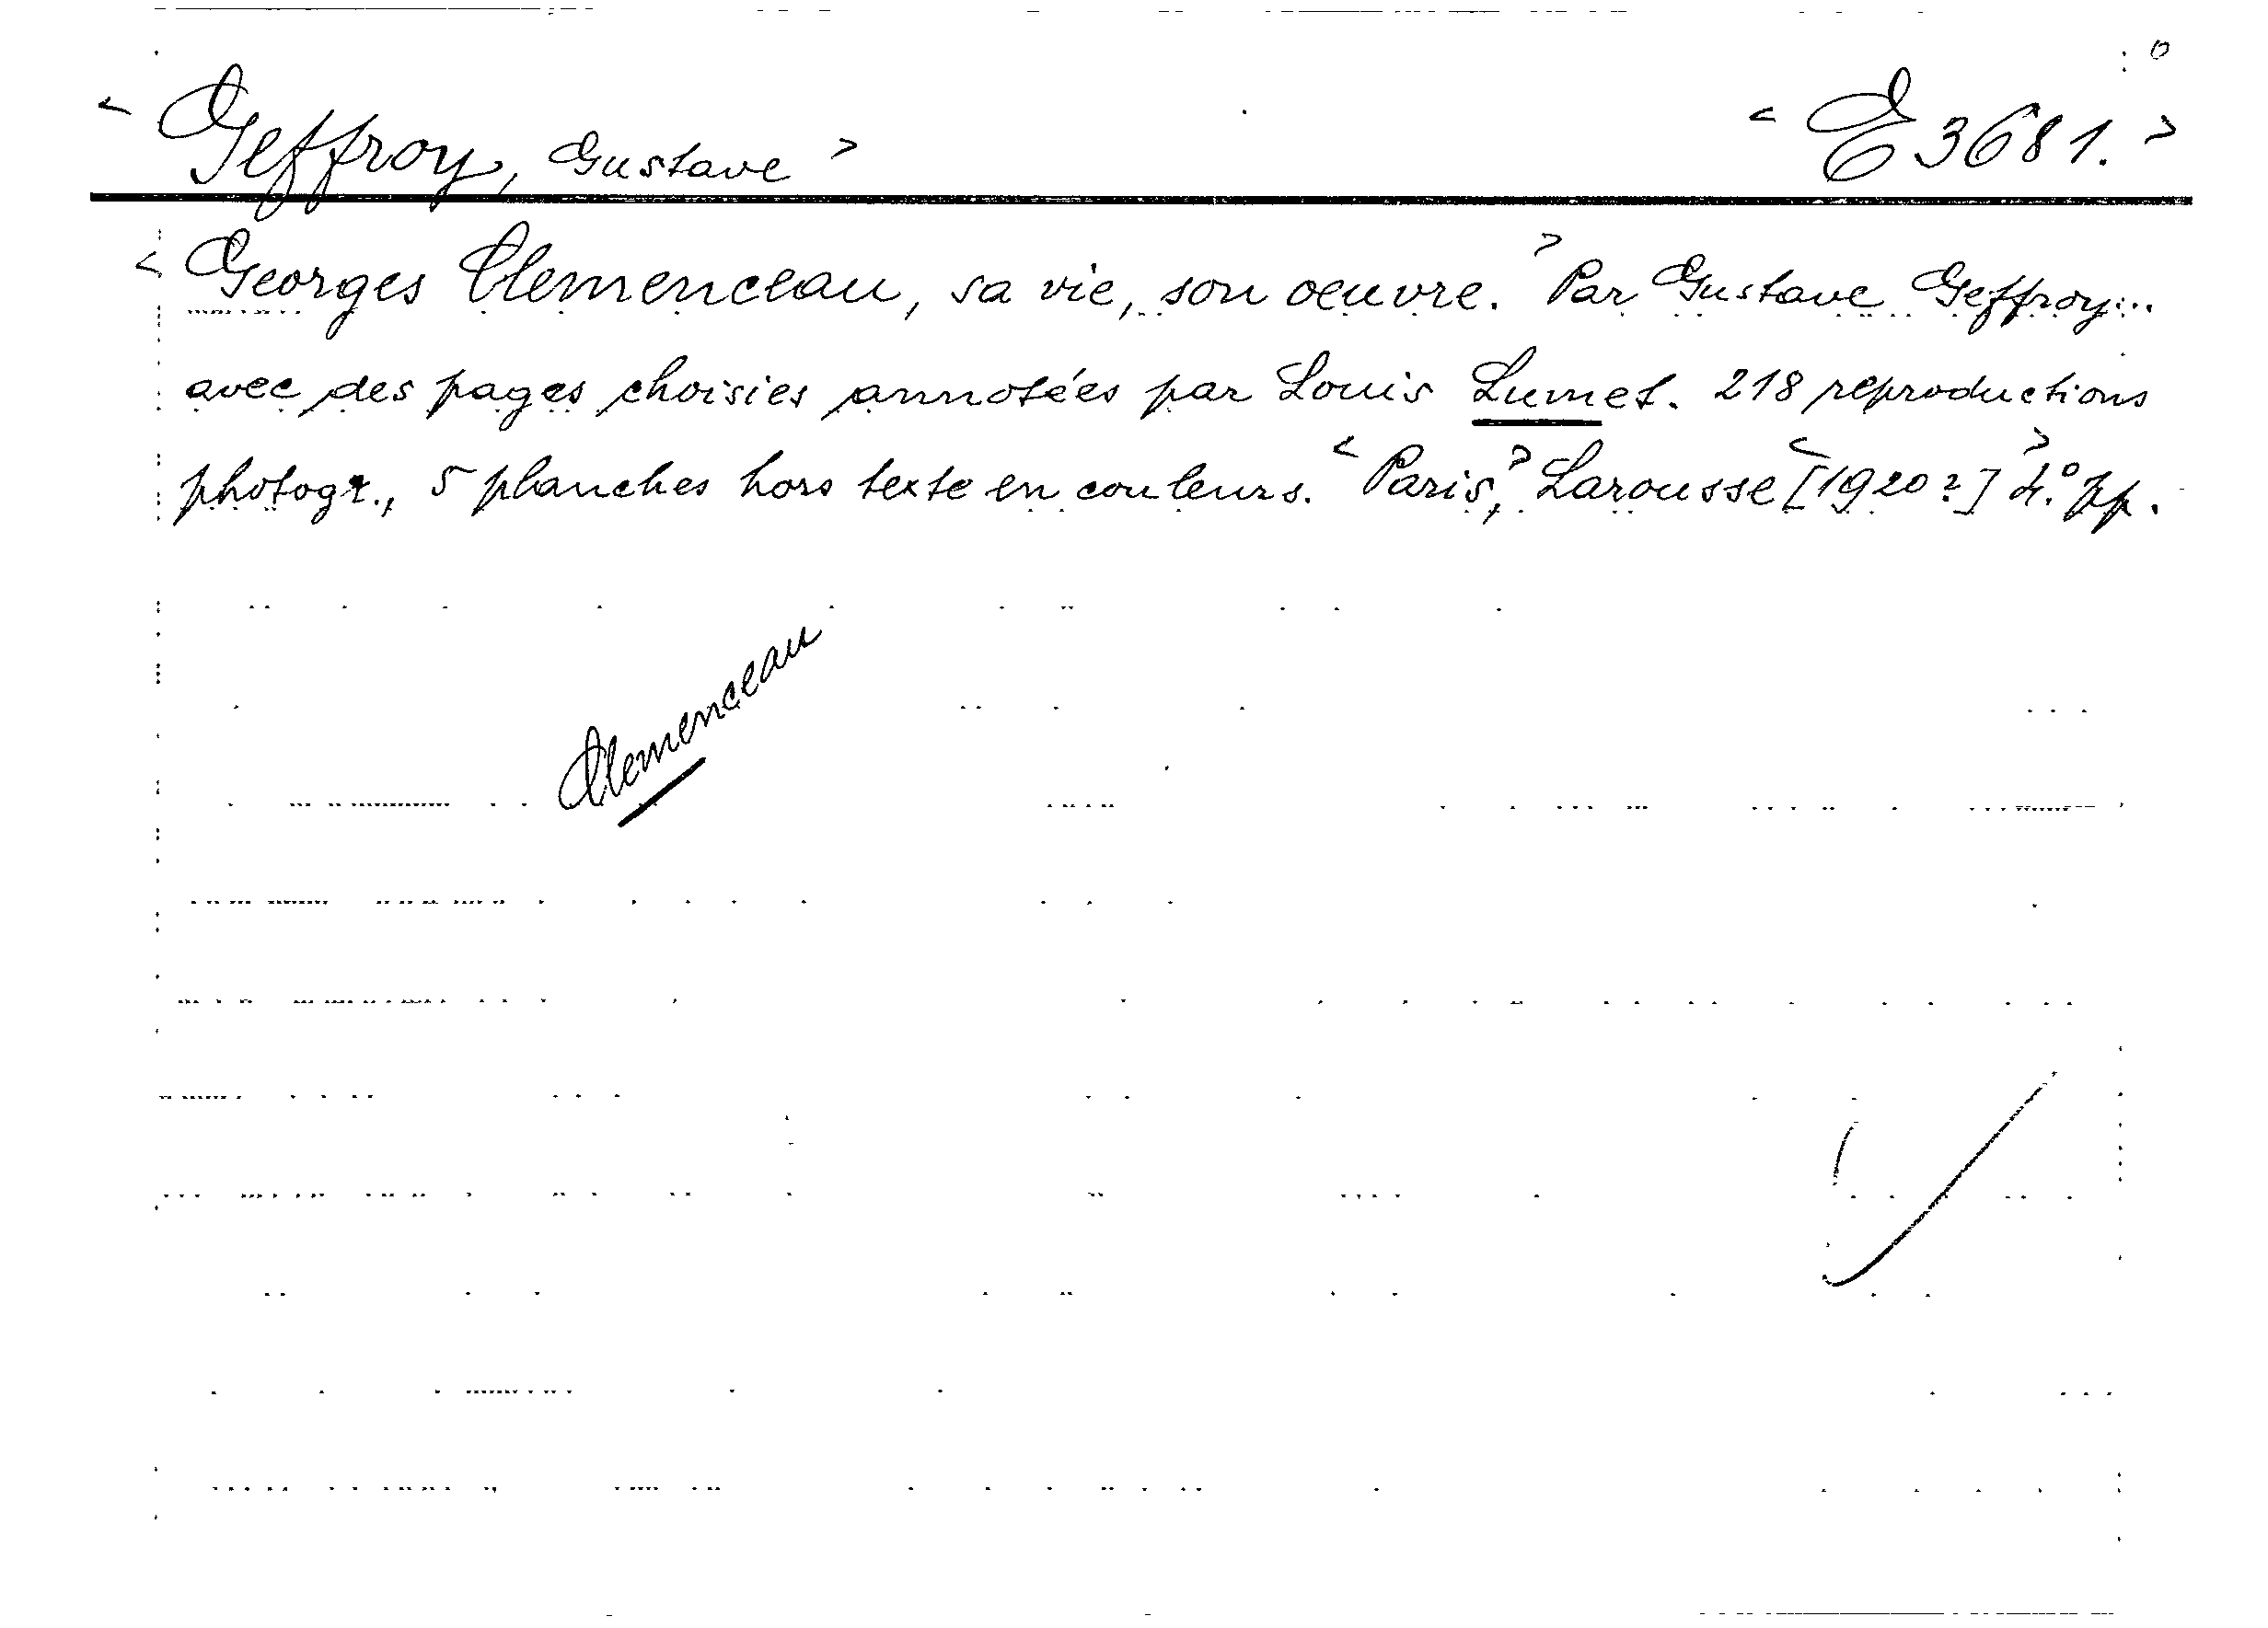 < Geffroy, Gustave > < E 3681. >
< Georges Clemenceau, sa vie, son oeuvre. > Par Gustave Geffroy...
avec des pages choisies annotées par Louis Lumet. 218 reproductions
photogr., 5 planches hors texte en couleurs. < Paris, > Larousse < [1920?] > 4.° pp.
Clemenceau